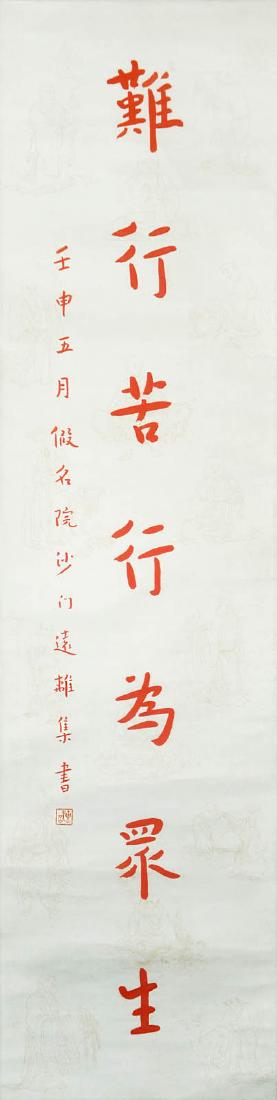 難行苦行為眾生
壬申五月假名院沙门遠離集書